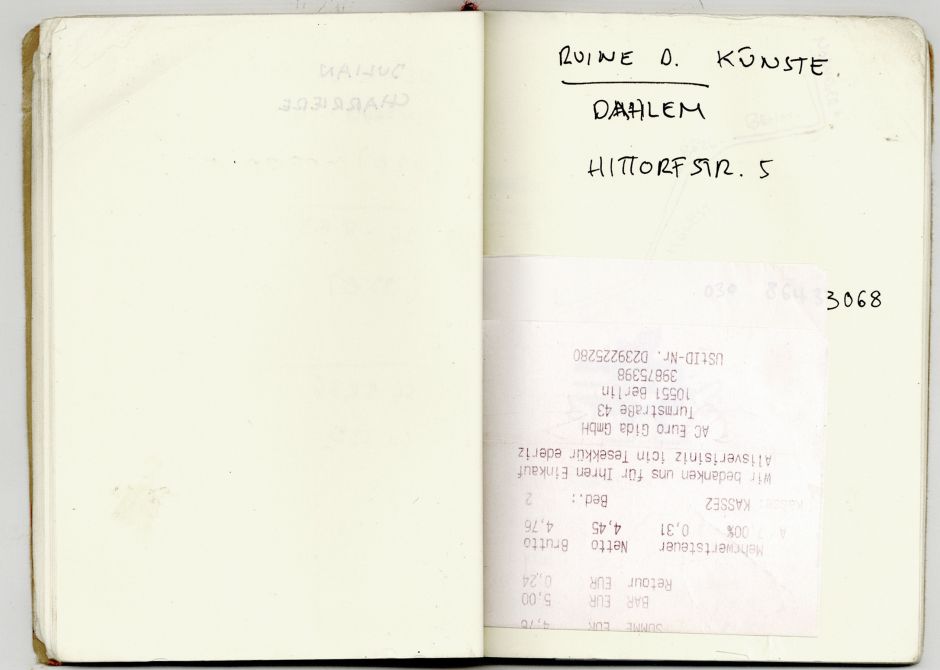 JULIAN
CHARRIERE
RUINE D. KÜNSTE
DAHLEM
HITTORFSTR. 5
030 86433068
SUMME EUR 4,76
BAR EUR 5,00
Retour EUR 0,24
Mehrwertsteuer Netto Brutto
A 7.00% 0,31 4,45 4,76
Kasse: KASSE2 Bed.: 2
Wir bedanken uns für Ihren Einkauf
Alisverisiniz icin Tesekkür ederiz
AC Euro Gida GmbH
Turmstraße 43
10551 Berlin
39875398
UStID-Nr. D239225280